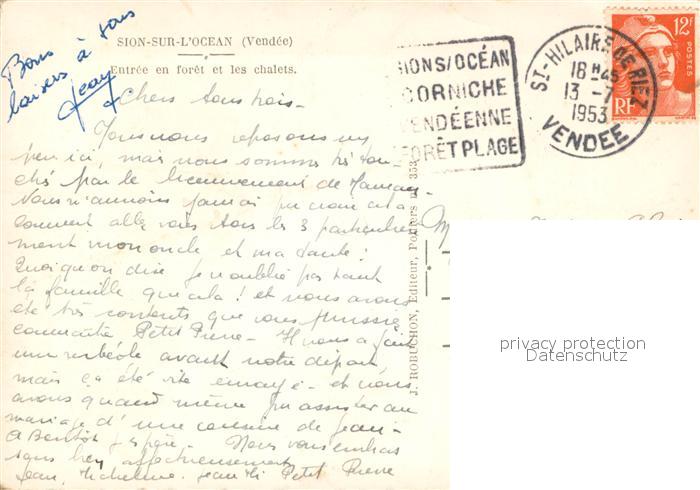 SION-SUR-L'OCEAN (Vendée)
Entrée en forêt et les chalets.
Bons
baisers à tous
Jean
Chers tous trois -
Nous nous reposons un
peu ici, mais nous sommes très tou-
chés par le de Maman
Nous n'aurions jamais pu croire cela
comment allez vous tous les 3 particulière
ment mon oncle et ma tante !
Quoiqu'on dise je n'oublie pas tant
la famille que cela ! et nous avons
été très contents que vous puissiez
connaître Petit Pierre - Il nous a fait
une rubéole avant notre départ
mais ça a été vite enrayé - et nous
avons quand même pu assister au
mariage d'une cousine de Jean -
A Bientôt j'espère. Nous vous embras
sons bien affectueusement
Jean, Micheline, Jean Petit Pierre
J. ROBUCHON, Editeur, Poitiers no 353
SIONS/OCÉAN
CORNICHE
VENDÉENNE
FORÊT PLAGE
ST-HILAIRE DE RIEZ
18H45
13 -7
1953
VENDEE
12F
POSTES
RF
privacy protection
Datenschutz